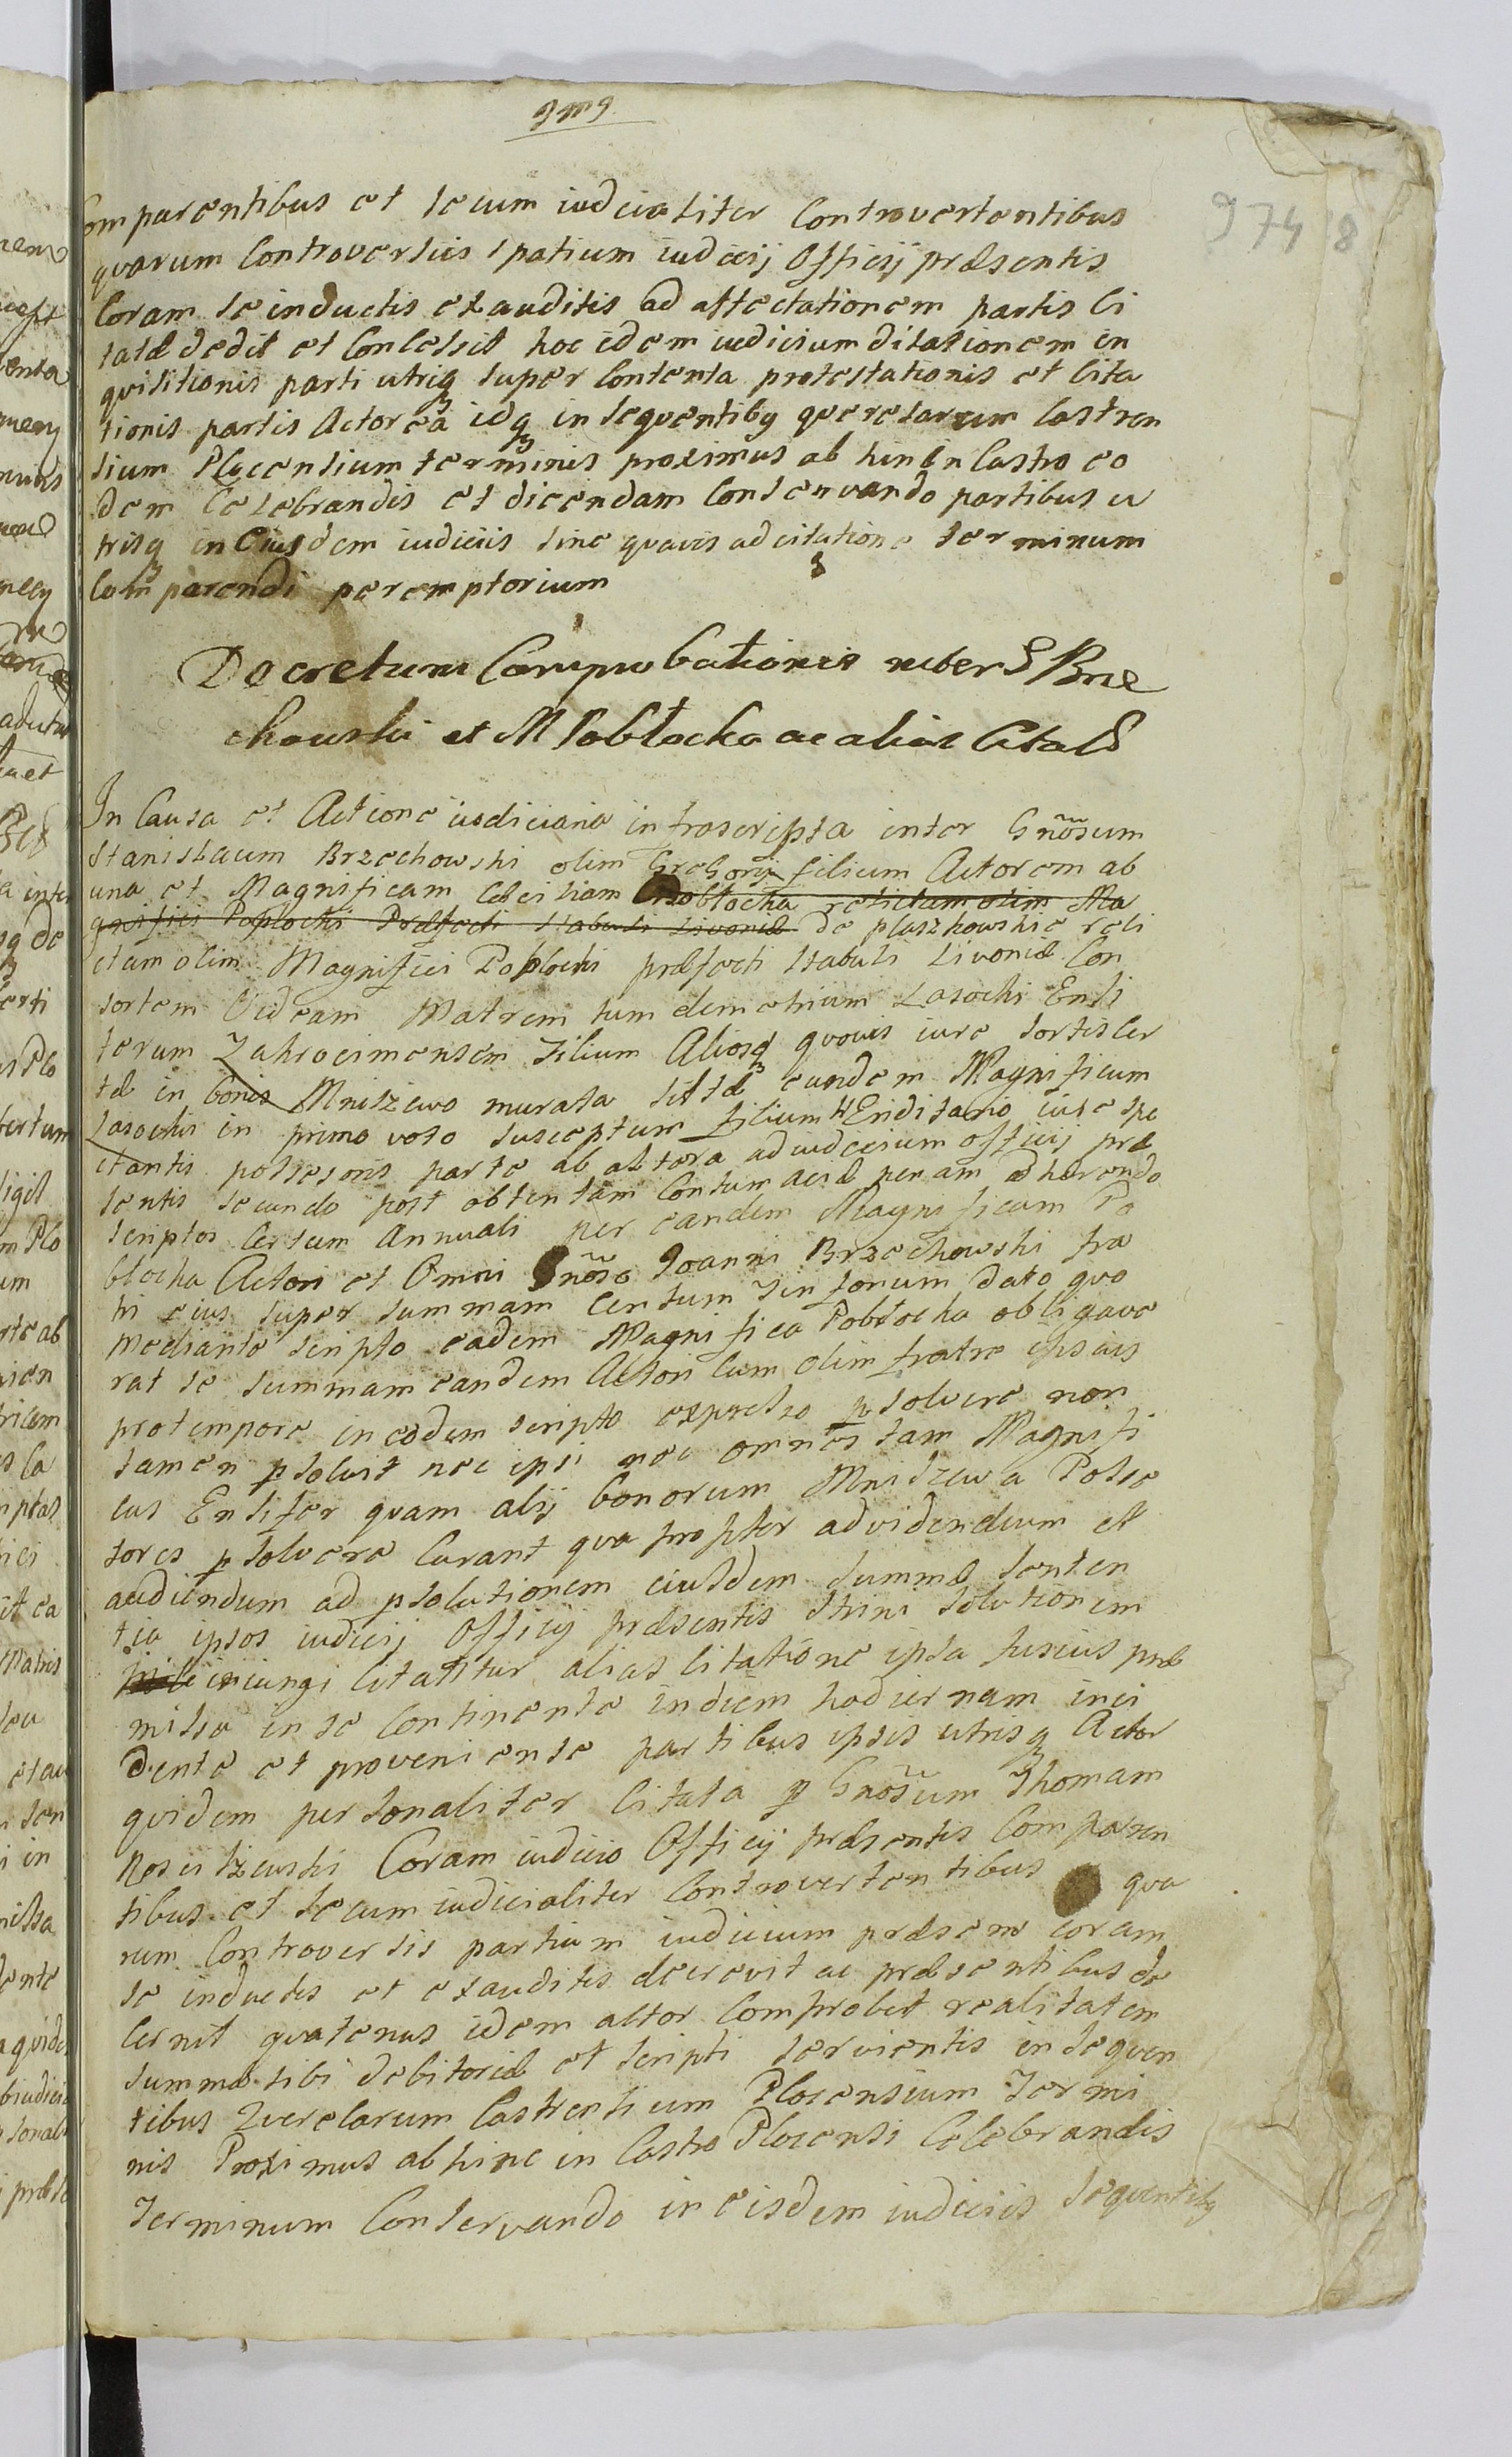 974 8
Comparentibus et secum iudicialiter Controvertentibus
quarum Controversiis Spatium iudicij Officij præsentis
Coram se inductis exauditis ad affectationem partis Ci
tatæ dedit et Concessit hoc idem iudicium dilationem in
quisitionis parti utriq super Contenta protestationis et Cita
tionis partis Actorea idq in sequentibq querelarum Castren
sium Plocensium terminis proximus ab hinc in Castro eo
dem Celebrandis et dicendam Conservando partibus u
trisq in Eiusdem iudiciis sine quavis adcitatione terminum
Comparendi peremptorium
Decretum Comprobationis inter G Brze
chowski et M Pobłocka ac alios Citatos
In Causa et Actione iudiciaria infrascripta inter Gnosum
Stanislaum Brzechowski olim Gregorij filium Actorem ab
una et Magnificam Ceciliam Pobłocka relictam olim Ma
gnifici Poplocki Præfecti Stabuli Livoniæ De plaszkowskie reli
ctam olim Magnifici Poblocki præfecti Stabuli Livoniæ Con
sortem Viduam Matrem tum demetrium Lasocki Ensi
ferum Zakrocimensem Filium Aliosq quovis iure sortis Cer
tæ in bonis Mniszewo murata sittæ eundem Magnificum
Lasocki in primo voto susceptum filium Hæriditario iure spe
ctantis possesoris parte ab altera ad iudicium officij præ
sentis secundo post obtentam Contumaciæ penam adhærendo
scriptos Certum Annuali per eandem Magnificam Po
błocka Actori et Omni Gnoso Joanni Brzechowski fra
tri eius super summam Centum Tinfonum dato quo
mediante scripto eadem Magnifica Pobłocka obligave
rat se summam eandem Actori Cum olim fratre ipsius
pro tempore in eodem scripto expresso psolvere non
tamen psolvit nec ipsi nec omnes tam Magnifi
cus Ensifer quam alij bonorum Mniszewa Posse
sores psolvere Curant qua propter ad videndum et
audiendum ad psolutionem eiusdem summæ senten
tia ipsos iudicij Officij præsentis Strini solutionem
iniungi Citantur alias Citatione ipsa fusius præ
missa in se Continente in diem hodiernam inci
dente et proveniente partibus ipsis utrisq Actor
quidem personaliter Citata p Gnosum Thomam
Rosciszewski Coram iudicio Officij præsentis Comparen
tibus et secum iudicialiter Controvertentibus qua
rum Controversis partium iudicium præsens coram
se inductis et exauditis decrevit ac præsentibus de
cernit quatenus idem altor Comprobet realitatem
summæ sibi debitoriæ et scripti servientis in sequen
tibus Querelarum Castrensium Plocensium Termi
nis Proximus ab hinc in Castro Plocensi Celebrandis
Terminum Conservando in eisdem iudiciis sequentibq